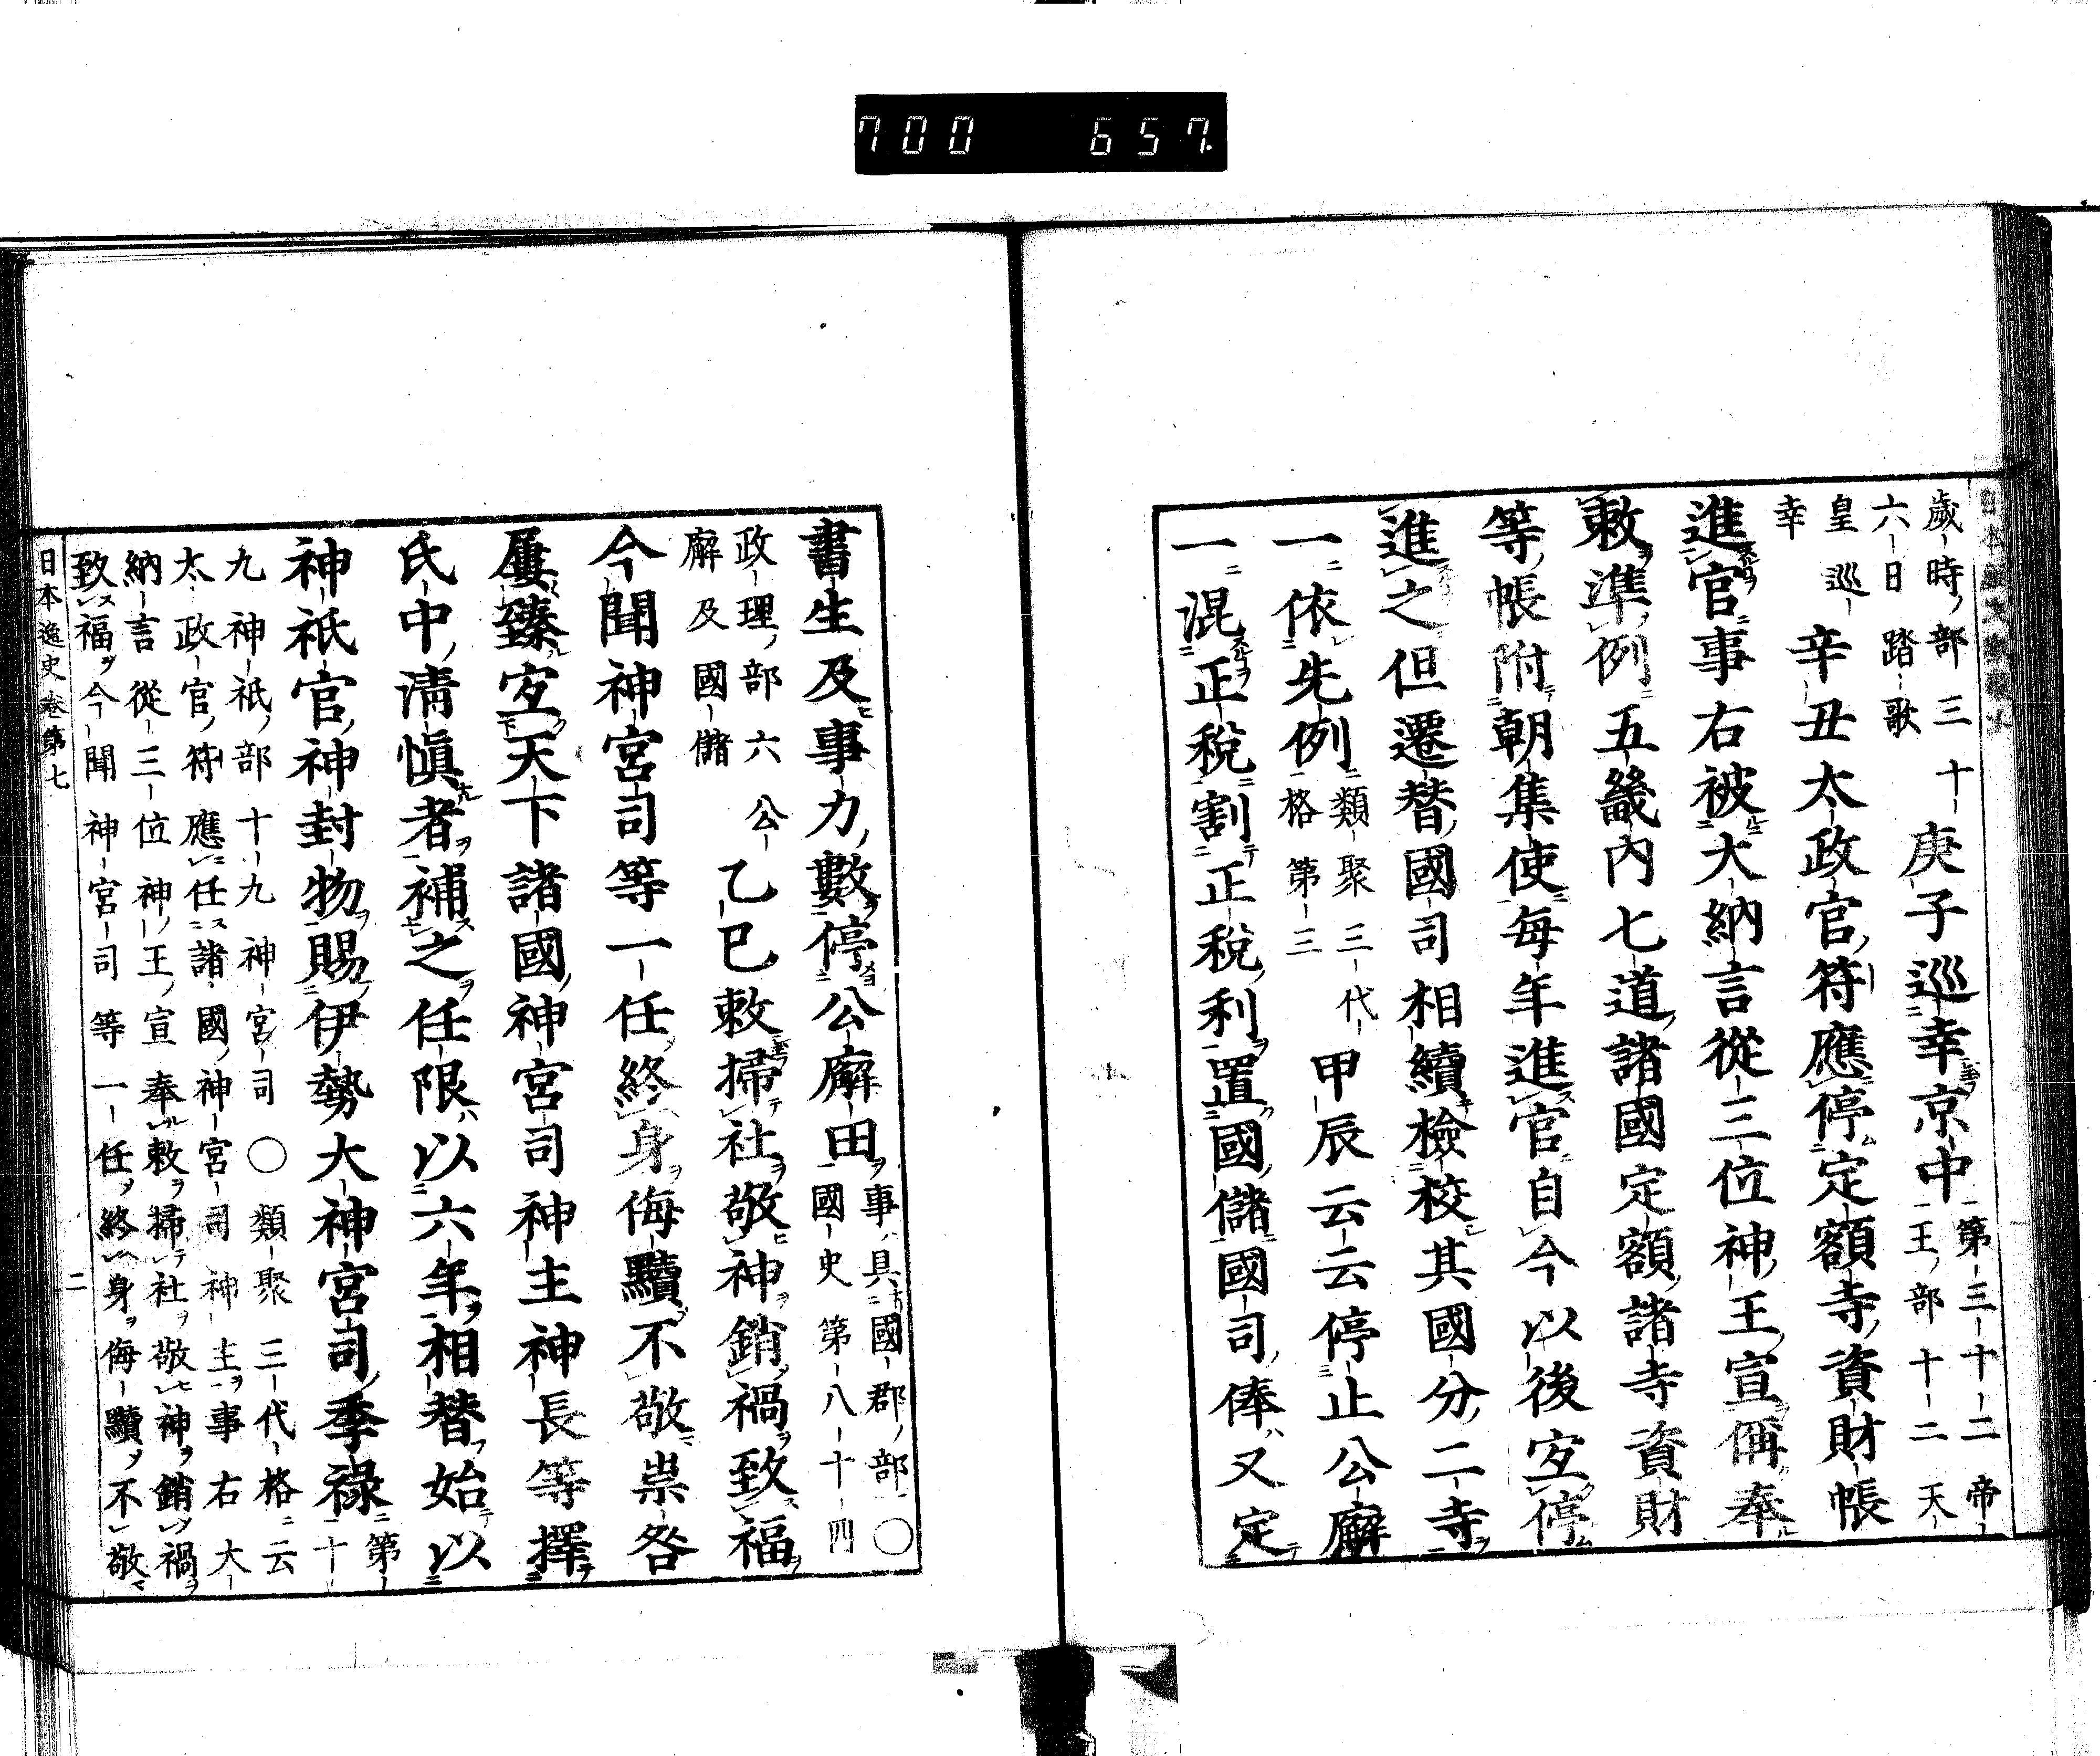 700 657
歲時部三十
六日踏歌
庚子巡幸京中
第三十二帝
王部十二天
皇巡
幸
辛丑太政官符應停定額寺資財帳
進官事右被大納言從三位神王宣偁奉
敕準例五畿內七道諸國定額諸寺資財
等帳附朝集使每年進官自今以後宜停
進之但遷替國司相續檢校其國分二寺
一依先例
類聚三代
格第三
甲辰云云停止公廨
一混正稅割正稅利置國儲國司俸又定
書生及事力數停公廨田
事具國郡部〇
國史第八十四
政理部六公
廨及國儲
乙巳敕掃社敬神銷禍致福
今聞神宮司等一任終身侮黷不敬祟咎
屢臻宜天下諸國神宮司神主神長等擇
氏中清慎者補之任限以六年相替始以
神祇官神封物賜伊勢大神宮司季祿
第
十
九神祇部十九神宮司〇類聚三代格云
太政官符應任諸國神宮司神主事右大
納言從三位神王宣奉敕掃社敬神銷禍
致福今聞神宮司等一任終身侮黷不敬
日本逸史卷第七 二